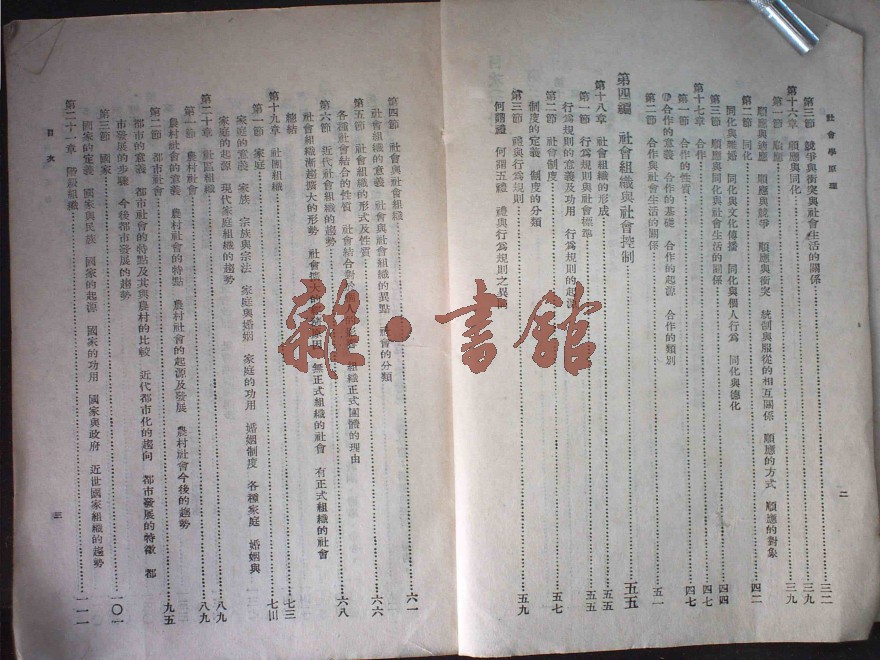 社會學原理
二
第三節 競爭與衝突與社會生活的關係 三二
第十六章 順應與同化 三九
第一節 順應 三九
順應與適應 順應與競爭 順應與衝突 統制與服從的相互關係 順應的方式 順應的對象
第二節 同化 四二
同化與婚姻 同化與文化傳播 同化與個人行為 同化與德化
第三節 順應與同化與社會生活的關係 四四
第十七章 合作 四七
第一節 合作的性質 四七
合作的意義 合作的基礎 合作的起源 合作的類別
第二節 合作與社會生活的關係 五一
第四編 社會組織與社會控制 五五
第十八章 社會組織的形成 五五
第一節 行為規則與社會標準 五五
行為規則的意義及功用 行為規則的起源
第二節 社會制度 五七
制度的定義 制度的分類
第三節 禮與行為規則 五九
何謂禮 何謂五禮 禮與行為規則之異同
第四節 社會與社會組織 六一
社會組織的意義 社會與社會組織的異點 社會的分類
第五節 社會組織的形式及性質 六六
各種社會結合的性質 社會結合對於個人 組織正式團體的理由
第六節 近代社會組織的趨勢 六八
社會組織漸趨擴大的形勢 社會擴大的 無正式組織的社會 有正式組織的社會
總結 七三
第十九章 社團組織 七四
第一節 家庭
家庭的意義 家族 宗族與宗法 家庭與婚姻 家庭的功用 婚姻制度 各種家庭 婚姻與
家庭的起源 現代家庭組織的趨勢
第二十章 社區組織 八九
第一節 農村社會 八九
農村社會的意義 農村社會的特點 農村社會的起源及發展 農村社會今後的趨勢
第二節 都市社會 九五
都市的意義 都市社會的特點及其與農村的比較 近代都市化的趨向 都市發展的特徵 都
市發展的步驟 今後都市發展的趨勢
第三節 國家 一〇一
國家的定義 國家與民族 國家的起源 國家的功用 國家與政府 近世國家組織的趨勢
第二十一章 階級組織 一一一
目次
三
雜·書館